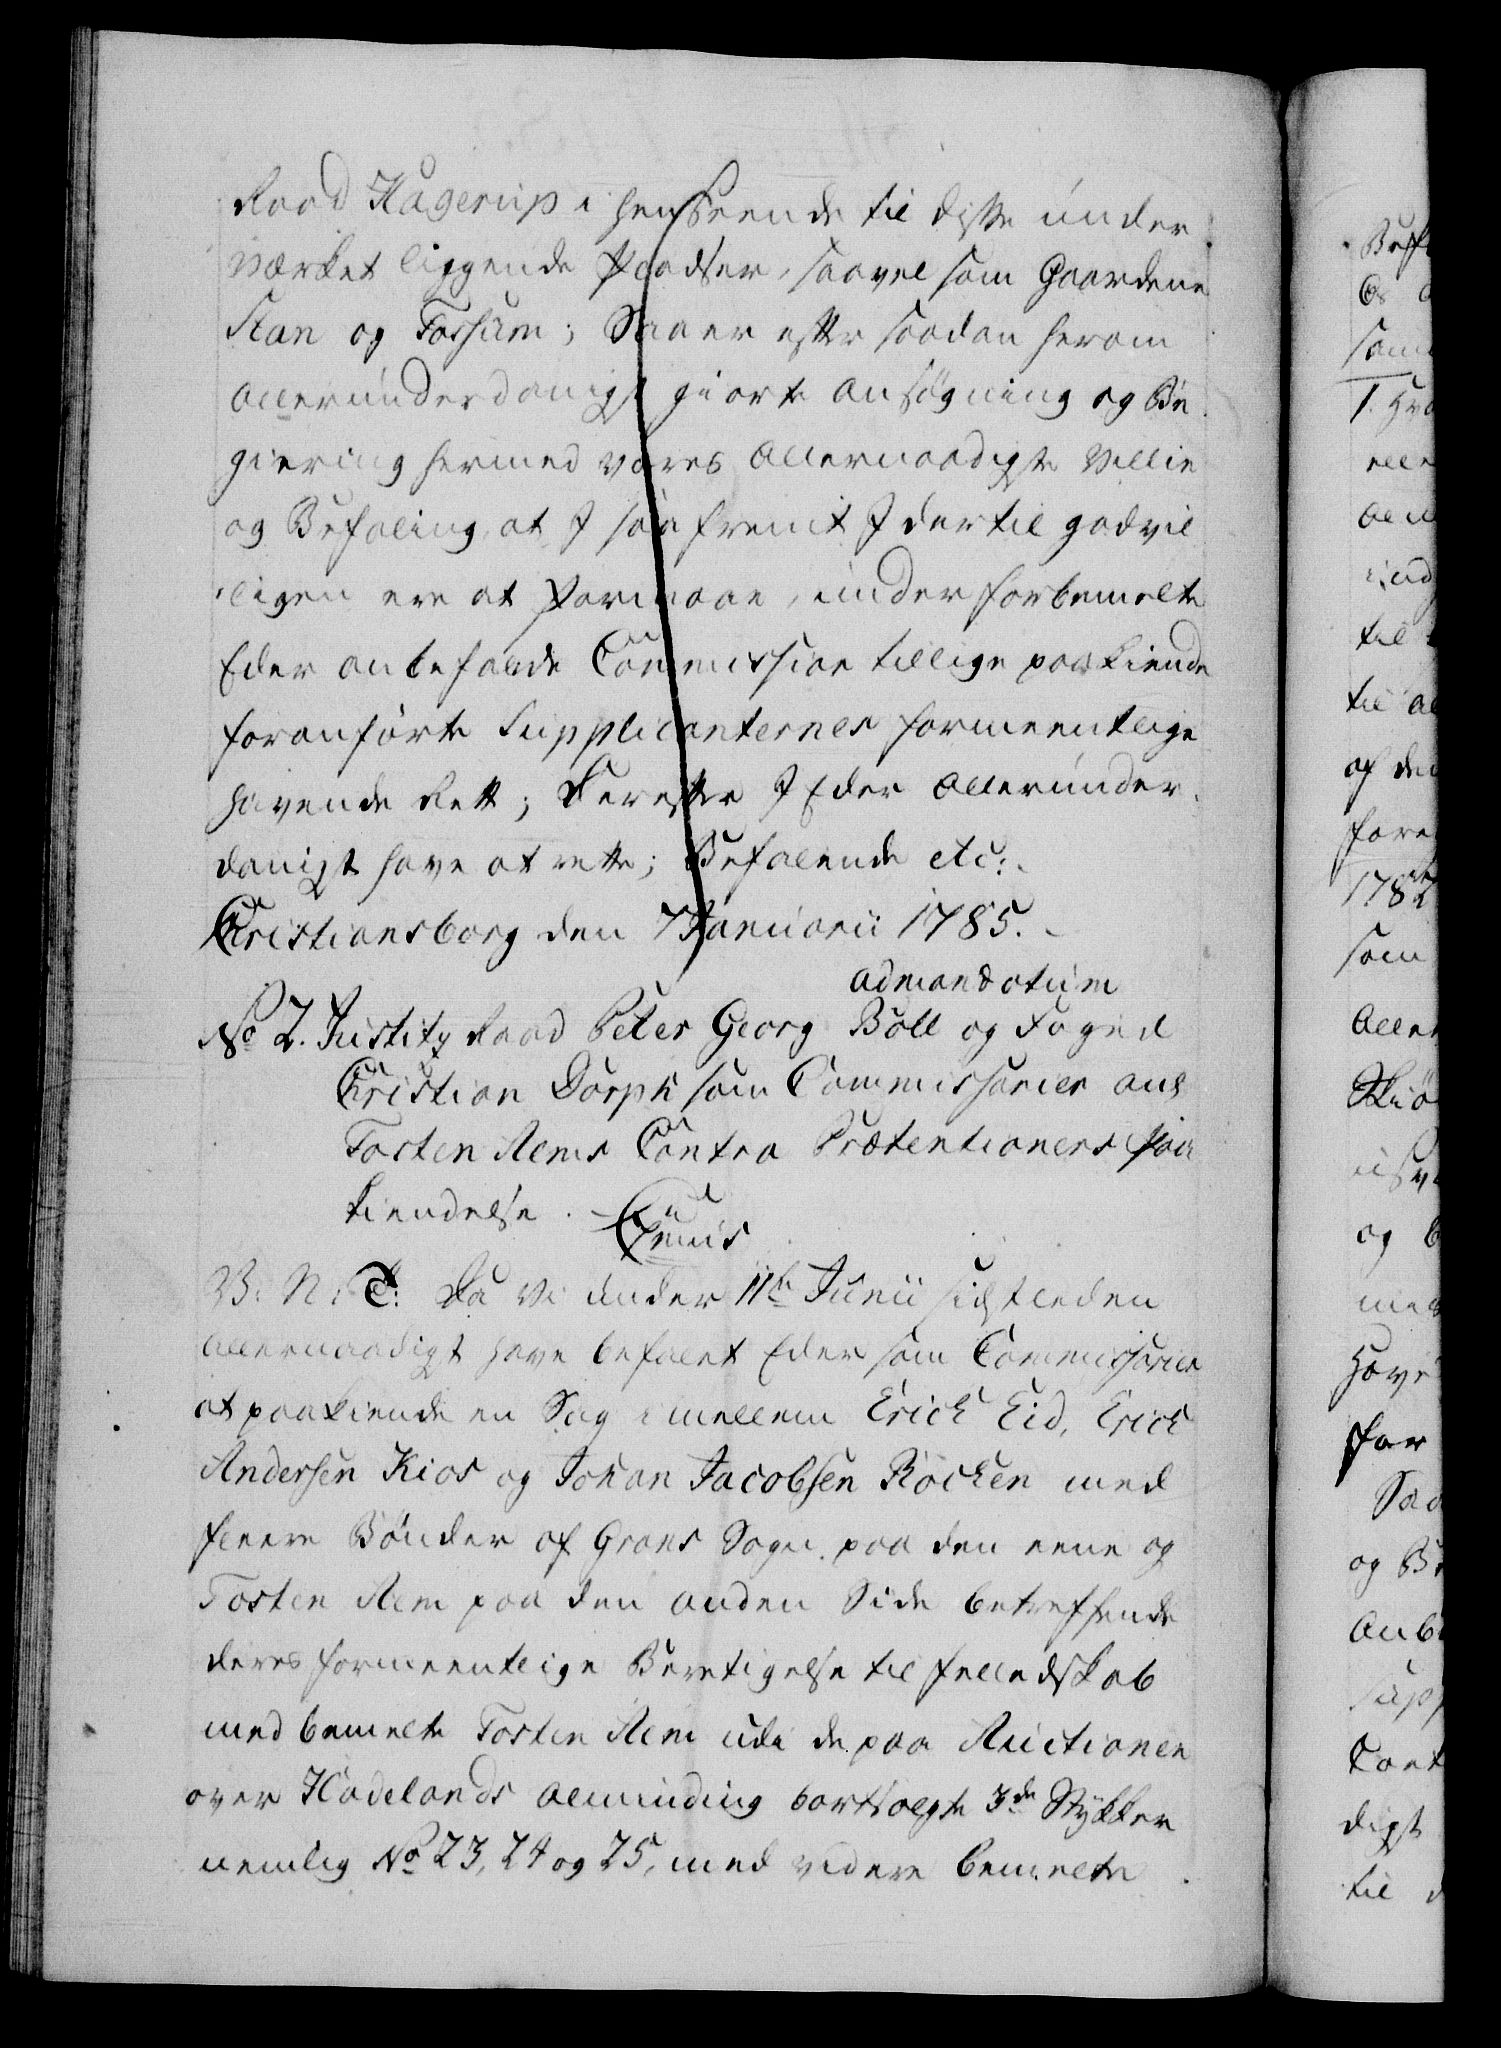 Raad Hagerup i henseende til disse under
Værket liggende Pladser, saavel som Gaardene
Stan og Fossum; Saa er efter saadan herom
allerunderdanigst giorte Ansøgning og Be-
giering hermed vores allernaadigste Villie
og Befaling, at I saafremt I dertil godvil-
ligen ere at formaae, under forbemelte
Eder anbefalede Commission tillige paakiende
foranførte Supplicanternes formeentlige
havende Rett; Derefter I Eder allerunder-
danigst have at rette; Befalende etc:
Christiansborg den 7 Januarii 1785.
ad mandatum
No 2. Justitz Raad Peter Georg Boll og Foged
Christian Dorph som Commissarier ang
Tosten Rems Contra Prætentioners paa-
kiendelse.
V: N: C: Da Vi under 11te Junii sidstleden
allernaadigst have befalet Eder som Commissarier
at paakiende en Sag imellem Erick Eid, Erick
Andersen Kios og Johan Jacobsen Röcken med
fleere Bønder af Grans Sogn paa den eene og
Tosten Rem paa den anden Side betreffende
deres formeentlige Berettigelse til Fælledskab
med bemelte Tosten Rem udi de paa Auctionen
over Hadelands Alminding bortsolgte 3de Stykker
nemlig No 23, 24 og 25, med videre bemelte